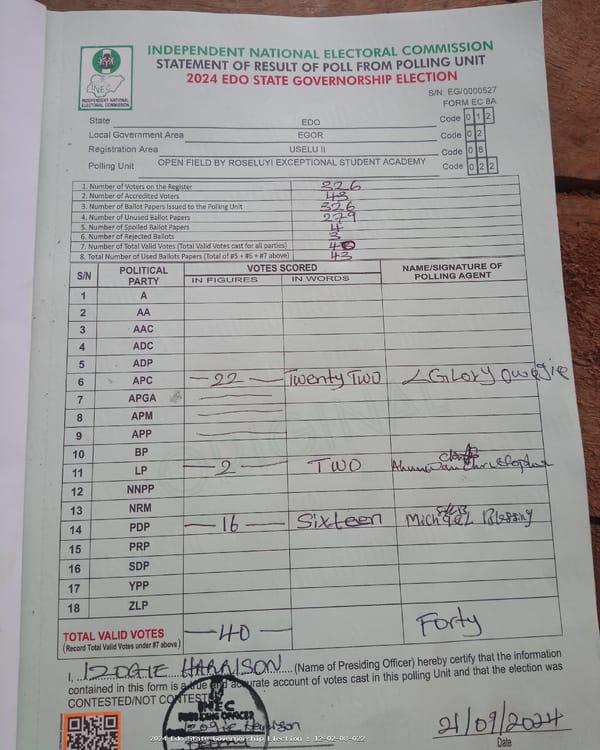 INDEPENDENT NATIONAL ELECTORAL COMMISSION
STATEMENT OF RESULT OF POLL FROM POLLING UNIT
2024 EDO STATE GOVERNORSHIP ELECTION
INEC
INDEPENDENT NATIONAL
ELECTORAL COMMISSION
S/N: EG/0000527
FORM EC 8A
State EDO Code 0 1 2
Local Government Area EGOR Code 0 2
Registration Area USELU II Code 0 8
Polling Unit OPEN FIELD BY ROSELUYI EXCEPTIONAL STUDENT ACADEMY Code 0 2 2
1. Number of Voters on the Register 326
2. Number of Accredited Voters 43
3. Number of Ballot Papers Issued to the Polling Unit 326
4. Number of Unused Ballot Papers 279
5. Number of Spoiled Ballot Papers 4
6. Number of Rejected Ballots 3
7. Number of Total Valid Votes (Total Valid Votes cast for all parties) 40
8. Total Number of Used Ballots Papers (Total of #5 + #6 + #7 above) 43
S/N POLITICAL PARTY VOTES SCORED NAME/SIGNATURE OF POLLING AGENT
IN FIGURES IN WORDS
1 A
2 AA
3 AAC
4 ADC
5 ADP
6 APC 22 Twenty Two Glory Owegie
7 APGA
8 APM
9 APP
10 BP
11 LP 2 TWO
12 NNPP
13 NRM
14 PDP 16 Sixteen Michael Blessing
15 PRP
16 SDP
17 YPP
18 ZLP
TOTAL VALID VOTES 40 Forty
(Record Total Valid Votes under #7 above)
I, IZOGIE HARRISON (Name of Presiding Officer) hereby certify that the information
contained in this form is a true and accurate account of votes cast in this polling Unit and that the election was
CONTESTED/NOT CONTESTED
INEC
PRESIDING OFFICER
Izogie Harrison
21/09/2024
Date
2024 Edo State Governorship Election : 12-02-08-022